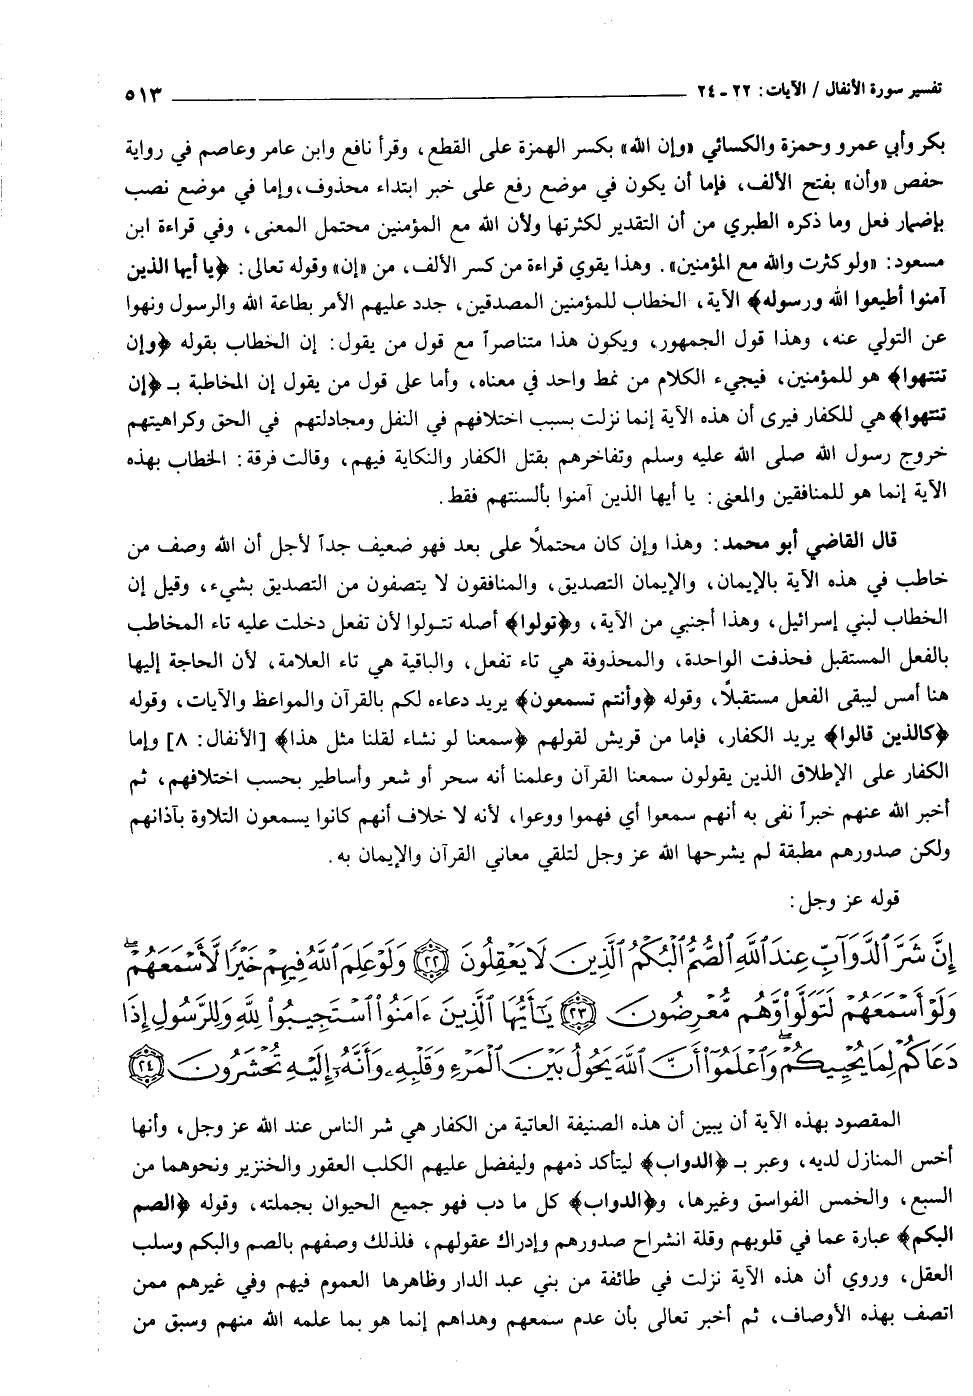 تفسير سورة الأنفال / الآيات: ٢٢ - ٢٤ ٥١٣
بكر وأبي عمرو وحمزة والكسائي «وإن الله» بكسر الهمزة على القطع، وقرأ نافع وابن عامر وعاصم في رواية
حفص «وأن» بفتح الألف، فإما أن يكون في موضع رفع على خبر ابتداء محذوف، وإما في موضع نصب
بإضمار فعل وما ذكره الطبري من أن التقدير لكثرتها ولأن الله مع المؤمنين محتمل المعنى، وفي قراءة ابن
مسعود: «ولو كثرت والله مع المؤمنين». وهذا يقوي قراءة من كسر الألف، من «إن» وقوله تعالى: ﴿يا أيها الذين
آمنوا أطيعوا الله ورسوله﴾ الآية، الخطاب للمؤمنين المصدقين، جدد عليهم الأمر بطاعة الله والرسول ونهوا
عن التولي عنه، وهذا قول الجمهور، ويكون هذا متناصراً مع قول من يقول: إن الخطاب بقوله ﴿وإن
تنتهوا﴾ هو للمؤمنين، فيجيء الكلام من نمط واحد في معناه، وأما على قول من يقول إن المخاطبة بـ ﴿إن
تنتهوا﴾ هي للكفار فيرى أن هذه الآية إنما نزلت بسبب اختلافهم في النفل ومجادلتهم في الحق وكراهيتهم
خروج رسول الله صلى الله عليه وسلم وتفاخرهم بقتل الكفار والنكاية فيهم، وقالت فرقة: الخطاب بهذه
الآية إنما هو للمنافقين والمعنى: يا أيها الذين آمنوا بألسنتهم فقط.
قال القاضي أبو محمد: وهذا وإن كان محتملاً على بعد فهو ضعيف جداً لأجل أن الله وصف من
خاطب في هذه الآية بالإيمان، والإيمان التصديق، والمنافقون لا يتصفون من التصديق بشيء، وقيل إن
الخطاب لبني إسرائيل، وهذا أجنبي من الآية، و﴿تولوا﴾ أصله تتولوا لأن تفعل دخلت عليه تاء المخاطب
بالفعل المستقبل فحذفت الواحدة، والمحذوفة هي تاء تفعل، والباقية هي تاء العلامة، لأن الحاجة إليها
هنا أمس ليبقى الفعل مستقبلاً، وقوله ﴿وأنتم تسمعون﴾ يريد دعاءه لكم بالقرآن والمواعظ والآيات، وقوله
﴿كالذين قالوا﴾ يريد الكفار، فإما من قريش لقولهم ﴿سمعنا لو نشاء لقلنا مثل هذا﴾ [الأنفال: ٨] وإما
الكفار على الإطلاق الذين يقولون سمعنا القرآن وعلمنا أنه سحر أو شعر وأساطير بحسب اختلافهم، ثم
أخبر الله عنهم خبراً نفى به أنهم سمعوا أي فهموا ووعوا، لأنه لا خلاف أنهم كانوا يسمعون التلاوة بآذانهم
ولكن صدورهم مطبقة لم يشرحها الله عز وجل لتلقي معاني القرآن والإيمان به.
قوله عز وجل:
إِنَّ شَرَّ ٱلدَّوَآبِّ عِندَ ٱللَّهِ ٱلصُّمُّ ٱلْبُكْمُ ٱلَّذِينَ لَا يَعْقِلُونَ ٢٢ وَلَوْ عَلِمَ ٱللَّهُ فِيهِمْ خَيْرًا لَّأَسْمَعَهُمْ ۖ
وَلَوْ أَسْمَعَهُمْ لَتَوَلَّوا۟ وَّهُم مُّعْرِضُونَ ٢٣ يَٰٓأَيُّهَا ٱلَّذِينَ ءَامَنُوا۟ ٱسْتَجِيبُوا۟ لِلَّهِ وَلِلرَّسُولِ إِذَا
دَعَاكُمْ لِمَا يُحْيِيكُمْ ۖ وَٱعْلَمُوٓا۟ أَنَّ ٱللَّهَ يَحُولُ بَيْنَ ٱلْمَرْءِ وَقَلْبِهِۦ وَأَنَّهُۥٓ إِلَيْهِ تُحْشَرُونَ ٢٤
المقصود بهذه الآية أن يبين أن هذه الصنيفة العاتية من الكفار هي شر الناس عند الله عز وجل، وأنها
أخس المنازل لديه، وعبر بـ ﴿الدواب﴾ ليتأكد ذمهم وليفضل عليهم الكلب العقور والخنزير ونحوهما من
السبع، والخمس الفواسق وغيرها، و﴿الدواب﴾ كل ما دب فهو جميع الحيوان بجملته، وقوله ﴿الصم
البكم﴾ عبارة عما في قلوبهم وقلة انشراح صدورهم وإدراك عقولهم، فلذلك وصفهم بالصم والبكم وسلب
العقل، وروي أن هذه الآية نزلت في طائفة من بني عبد الدار وظاهرها العموم فيهم وفي غيرهم ممن
اتصف بهذه الأوصاف، ثم أخبر تعالى بأن عدم سمعهم وهداهم إنما هو بما علمه الله منهم وسبق من